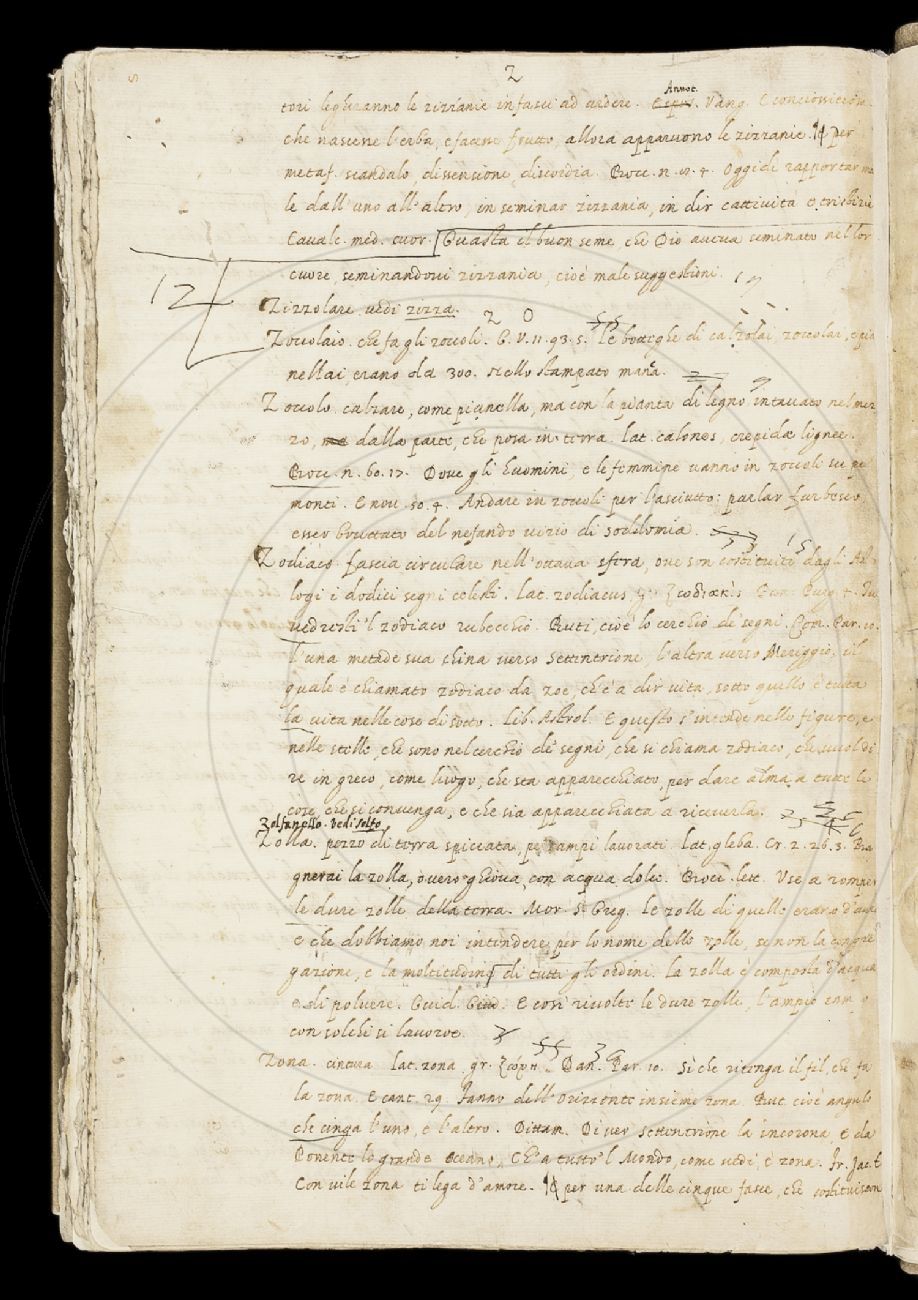 Z
Annot.
tori legheranno le zizzanie in fasci ad ardere. Vang. E conciossiecosa
che nascesse l'erba, e facesse frutto, allora apparvono le zizzanie. ¶ per
metaf. scandalo, dissensione, discordia. Bocc. n. Oggidì rapportar ma
le dall'uno all'altro, in seminar zizzania, in dir cattività e tristizie
Cavalc. med. cuor. Guasta il buon seme, che Dio aveva seminato nel lor
cuore, seminandovi zizzania, cioè male suggestioni.
12
Zizzolare, vedi zizza.
Z O
Zoccolaio. che fa gli zoccoli. G. V. 11. 93. 5. Le botteghe di calzolai, zoccolai, e pia
nellai, erano da 300. nello stampato manca.
Zoccolo. calzare, come pianella, ma con la pianta di legno intaccato nel mez
zo, dalla parte, che posa in terra. lat. calones, crepidæ ligneæ.
Bocc. n. 60. 17. Dove gli huomini, e le femmine vanno in zoccoli su pe
monti. E nov. 50. 4. Andare in zoccoli per l'asciutto: parlar furbesco
esser bruttato del nefando vizio di soddomia.
Zodiaco. fascia circulare nell'ottava sfera, ove son costituiti dagli Ast
logi i dodici segni celesti. Lat. zodiacus gr. Dan. Purg. 4. Tu
vedresti 'l zodiaco rubecchio. Buti, cioè lo cerchio de segni. Com. Par. 10.
l'una metade sua china verso Settentrione, l'altra verso Meriggio, il
quale è chiamato zodiaco da zoe, ch'è a dir vita, sotto quello è tutta
la vita nelle cose di sotto. Lib. Astrol. E questo s'intende nelle figure, e
nelle stelle, che sono nel cerchio de segni, che si chiama zodiaco, che vuol di
re in greco, come luogo, che sta apparecchiato, per dare alma a tutte le
cose, che si convenga, e che sia apparecchiata a riceverla.
Zolfanello. Vedi Solfo.
Zolla. pezzo di terra spiccata, pe campi lavorati. Lat. gleba. Cr. 2. 26. 3. Ba
gnerai la zolla, o vero ghiova, con acqua dolce. Declam. Use a romper
le dure zolle della terra. Mor. S. Greg. Le zolle di quello erano d'auro
e che dobbiamo noi intendere per lo nome delle zolle, se non la congre
gazione, e la moltitudine di tutti gli ordini. La zolla è composta d'acqua
e di polvere. Ovid. E così rivolte le dure zolle, l'ampio
con solchi si lavoroe.
Zona. cintura. Lat. zona. gr. ζώνη. Dan. Par. 10. Sì che ritenga il fil, che fa
la zona. E cant. 29. Fanno dell'Orizzonte insieme zona. But. cioè angulo
che cinga l'uno, e l'altro. Dittam. Di ver settentrione la incorona, e da
Ponente lo grande Oceano, Ch'a tutto 'l Mondo, come vedi, è zona. Fr. Jac. t
Con vile zona ti lega d'amore. ¶ per una delle cinque fasce, che costituiscon